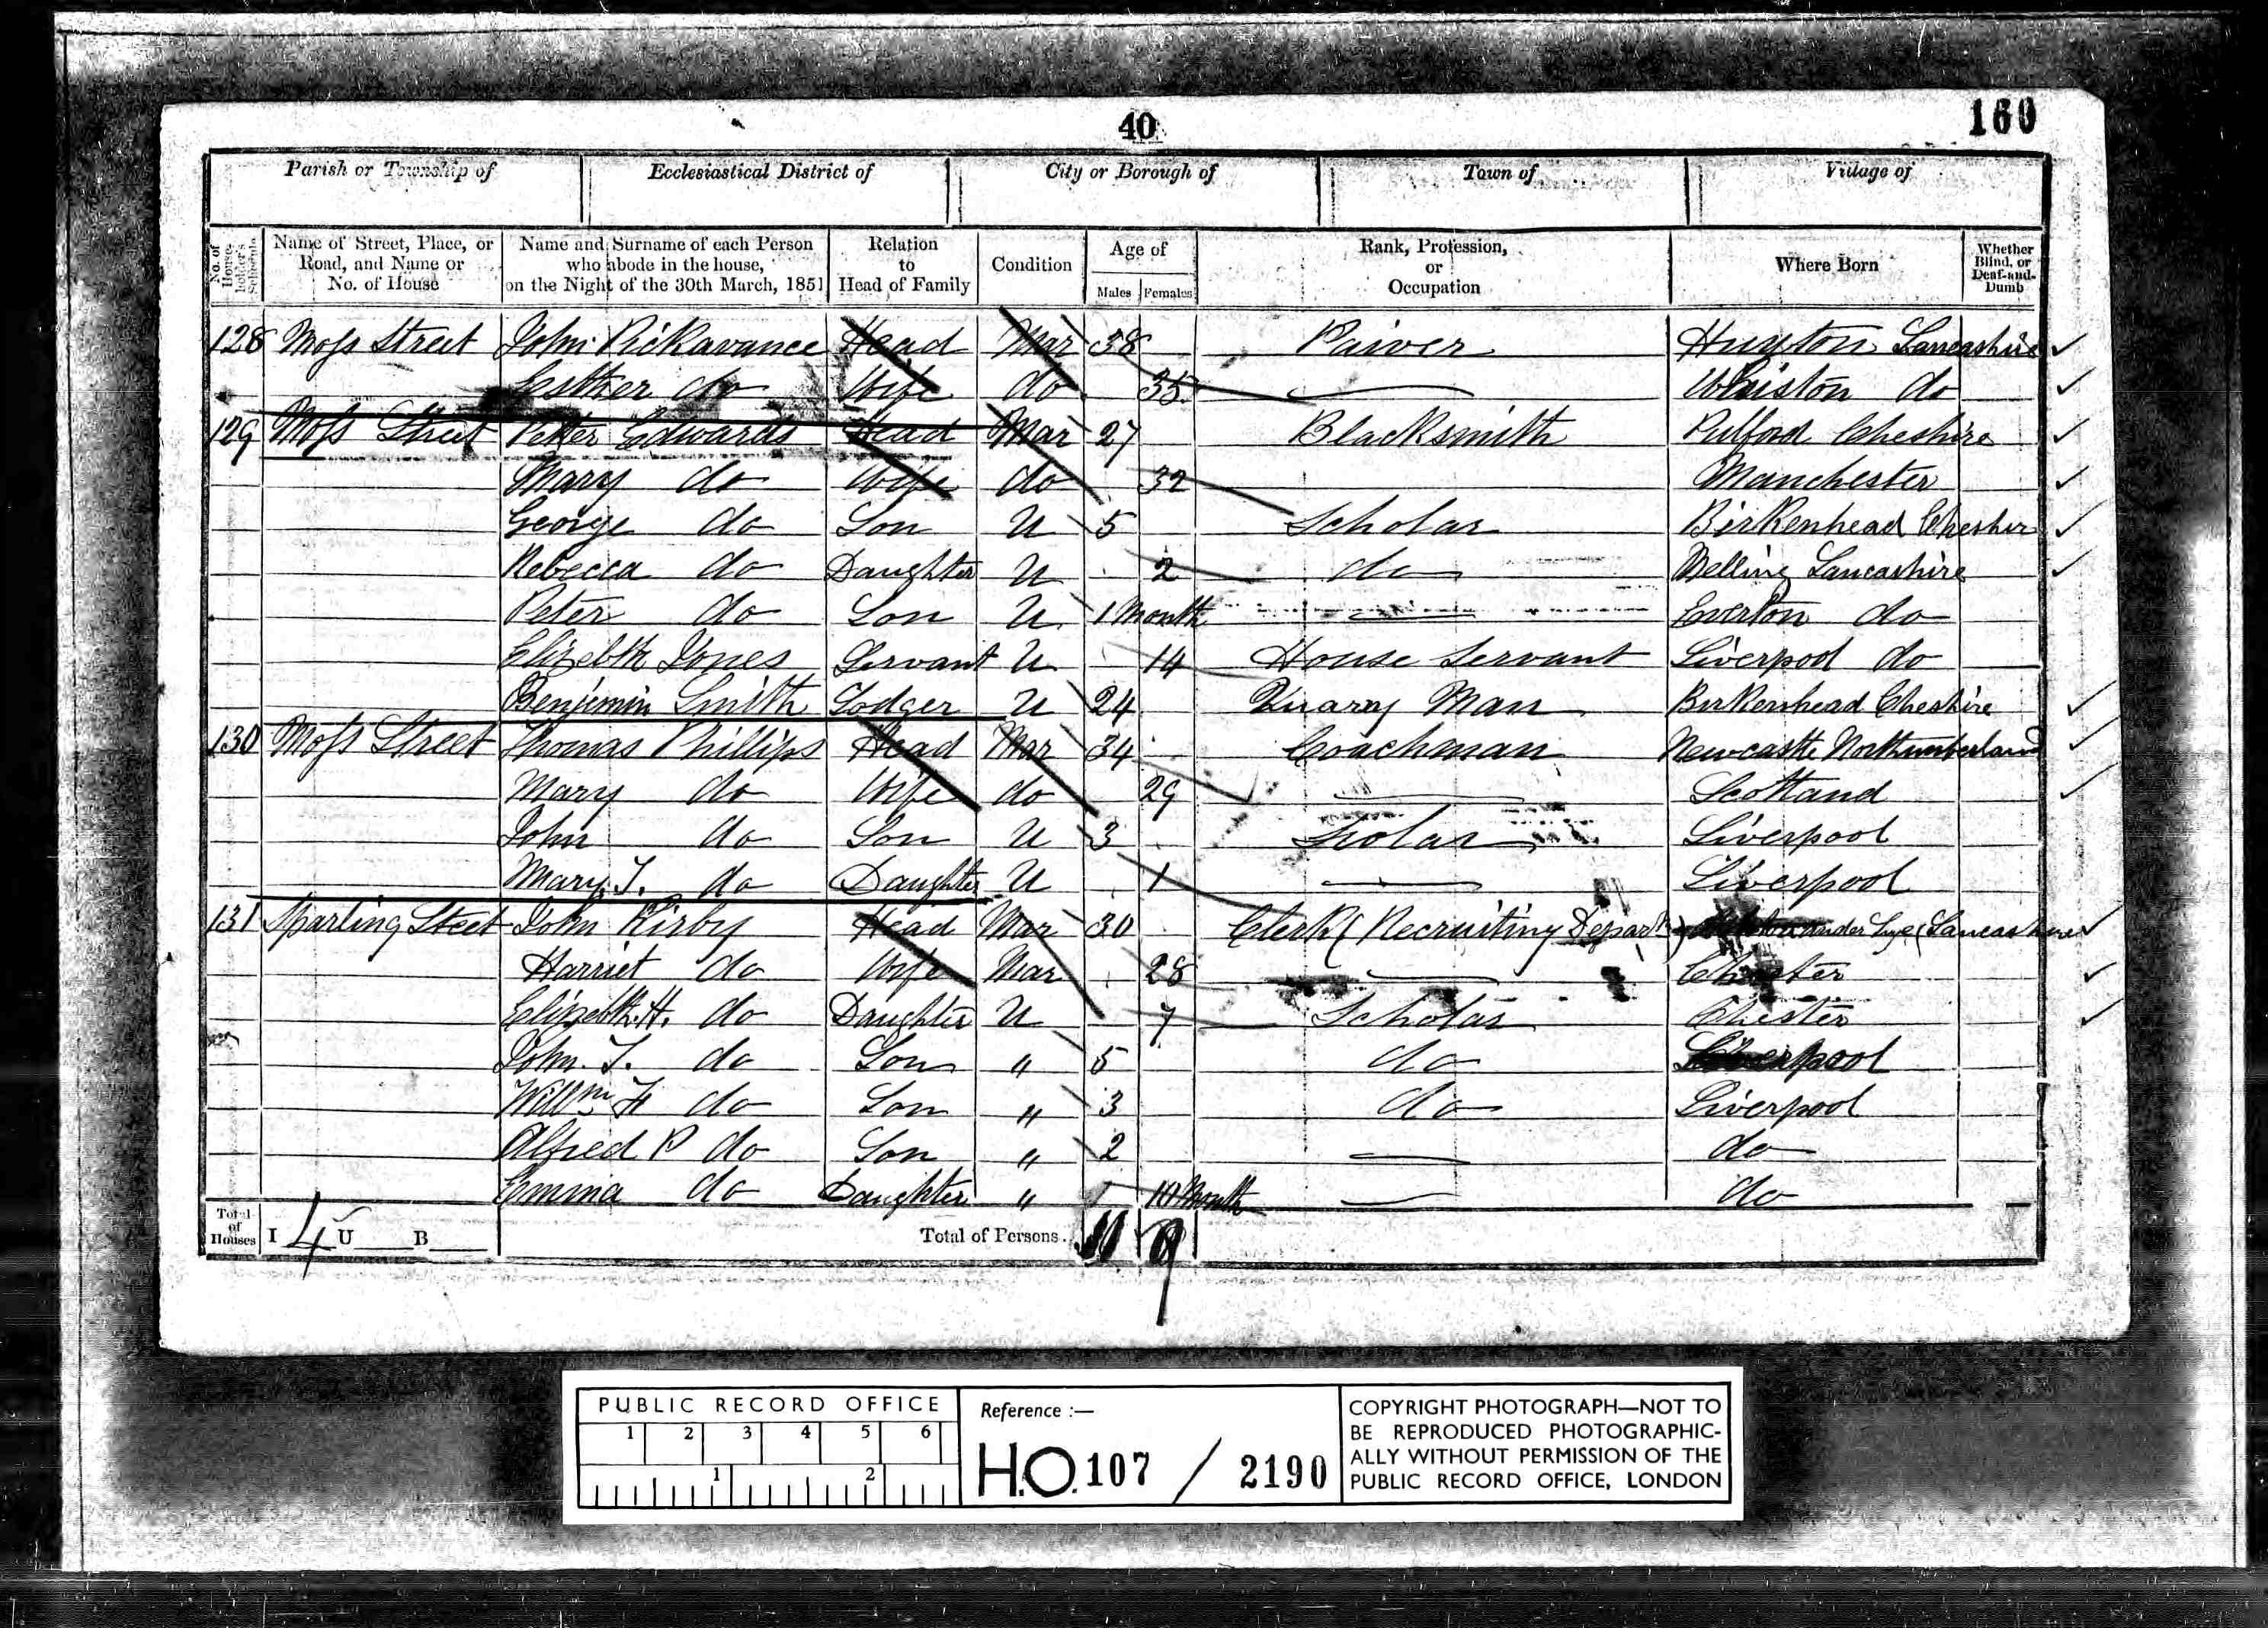 40
160
Parish or Township of Ecclesiastical District of City or Borough of Town of Village of
No. of House-holder's Schedule Name of Street, Place, or Road, and Name or No. of House Name and Surname of each Person who abode in the house, on the Night of the 30th March, 1851 Relation to Head of Family Condition Age of Males Females Rank, Profession, or Occupation Where Born Whether Blind, or Deaf-and-Dumb
128 Moss Street John Pickavance Head Mar 38 Paiver Huyton Lancashire ✓
Esther do Wife do 35 — Whiston do ✓
129 Moss Street Peter Edwards Head Mar 27 Blacksmith Pulford Cheshire ✓
Mary do Wife do 32 Manchester ✓
George do Son U 5 Scholar Birkenhead Cheshir ✓
Rebecca do Daughter U 2 do Melling Lancashire ✓
Peter do Son U 1 Month — Everton do
Elizebth Jones Servant U 14 House Servant Liverpool do
Benjimin Smith Lodger U 24 Quarry Man Birkenhead Cheshire ✓
130 Moss Street Thomas Phillips Head Mar 34 Coachman Newcastle Northumberland ✓
Mary do Wife do 29 — Scotland ✓
John do Son U 3 Scolar Liverpool
Mary J. do Daughter U 1 — Liverpool
131 Sparling Steet John Kirby Head Mar 30 Clerk (Recruiting Depart) under Lyne (Lancashire ✓
Harriet do Wife Mar 28 — Chester ✓
Elizebth. H. do Daughter U 7 Scholar Chester ✓
John. J. do Son " 5 do Liverpool
Willm H do Son " 3 do Liverpool
Alfred P do Son " 2 — do
Emma do Daughter " 10 Month — do
Total of Houses I 4 U B Total of Persons 11 9
PUBLIC RECORD OFFICE
1 2 3 4 5 6
1 2
Reference :—
H.O. 107 / 2190
COPYRIGHT PHOTOGRAPH—NOT TO
BE REPRODUCED PHOTOGRAPHIC-
ALLY WITHOUT PERMISSION OF THE
PUBLIC RECORD OFFICE, LONDON